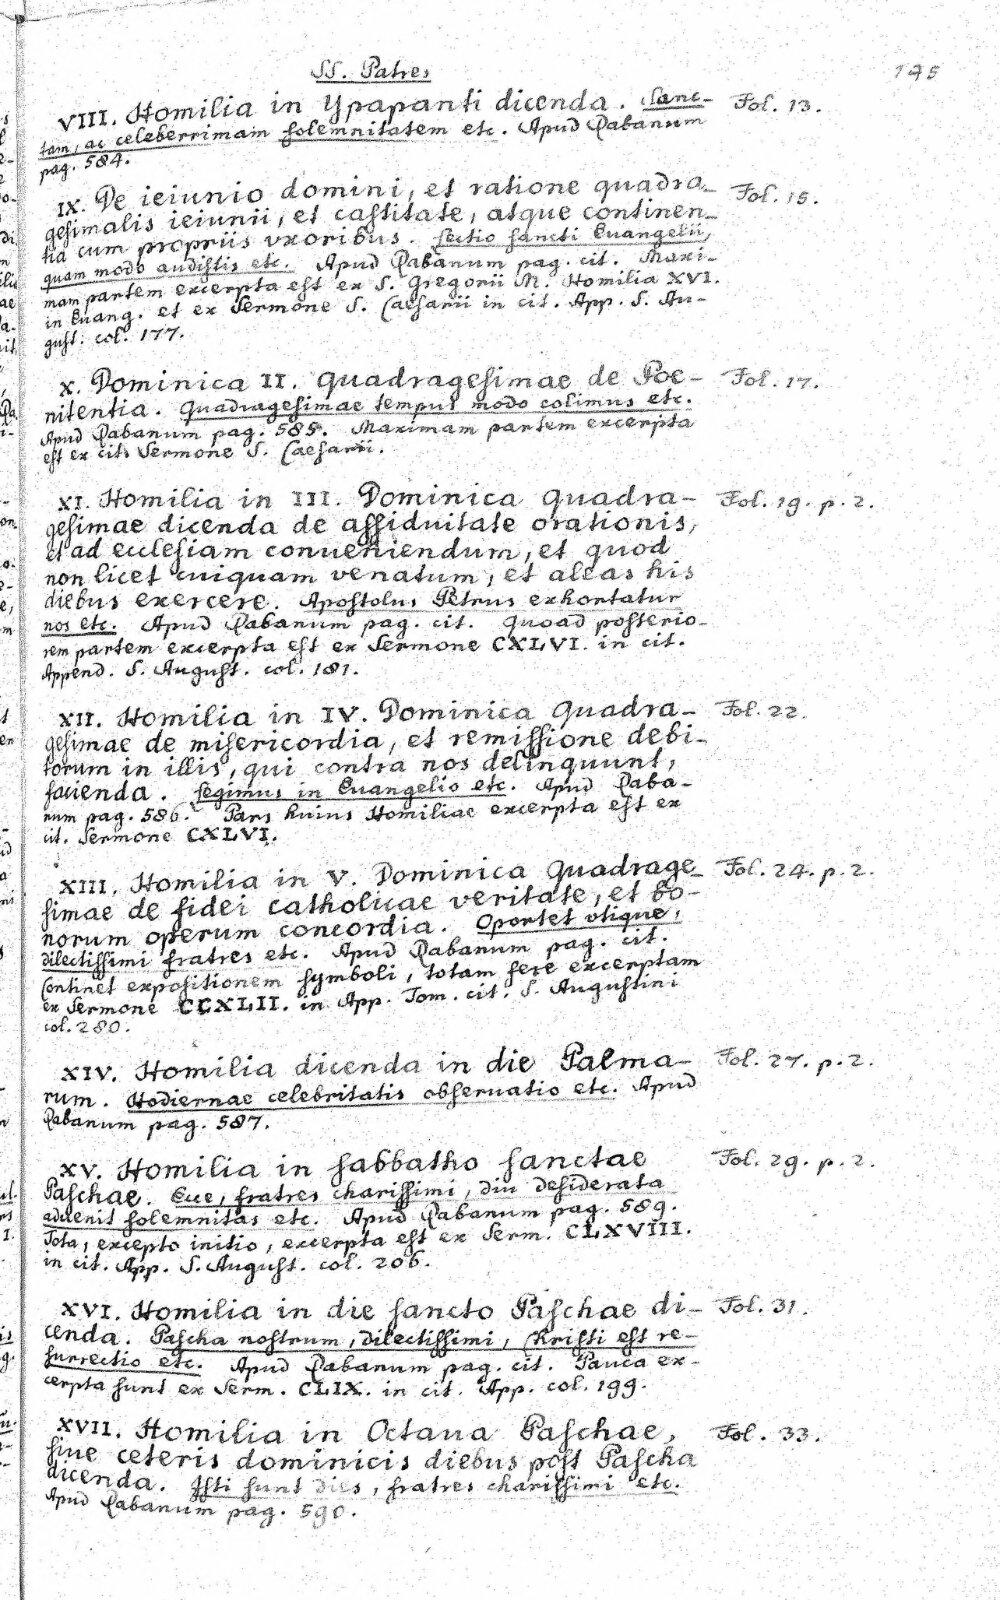 SS. Patres
195
VIII. Homilia in Ypapanti dicenda. Sanc- Fol. 13.
tam, ac celeberrimam solemnitatem etc. Apud Rabanum
pag. 584.
IX. De ieiunio domini, et ratione quadra- Fol. 15.
gesimalis ieiunii, et castitate, atque continen-
tia cum propriis vxoribus. Lectio sancti Euangelii,
quam modo audistis etc. Apud Rabanum pag. cit. Maxi-
mam partem excerpta est ex S. Gregorii M. Homilia XVI.
in Euang. et ex Sermone S. Caesarii in cit. App. S. Au-
gust. col. 177.
X. Dominica II. Quadragesimae de Poe- Fol. 17.
nitentia. Quadragesimae tempus modo colimus etc.
Apud Rabanum pag. 585. Maximam partem excerpta
est ex cit. Sermone S. Caesarii.
XI. Homilia in III. Dominica Quadra- Fol. 19. p. 2.
gesimae dicenda de assiduitate orationis,
et ad ecclesiam conueniendum, et quod
non licet cuiquam venatum, et aleas his
diebus exercere. Apostolus Petrus exhortatur
nos etc. Apud Rabanum pag. cit. Quoad posterio-
rem partem excerpta est ex Sermone CXLVI. in cit.
Append. S. August. col. 181.
XII. Homilia in IV. Dominica Quadra- Fol. 22.
gesimae de misericordia, et remissione debi-
torum in illis, qui contra nos delinquunt,
facienda. Legimus in Euangelio etc. Apud Raba-
num pag. 586. Pars huius Homiliae excerpta est ex
cit. Sermone CXLVI.
XIII. Homilia in V. Dominica Quadrage- Fol. 24. p. 2.
simae de fidei catholicae veritate, et bo-
norum operum concordia. Oportet vtique,
dilectissimi fratres etc. Apud Rabanum pag. cit.
Continet expositionem symboli, totam fere excerptam
ex Sermone CCXLII. in App. Tom. cit. S. Augustini
col. 280.
XIV. Homilia dicenda in die Palma- Fol. 27. p. 2.
rum. Hodiernae celebritatis obseruatio etc. Apud
Rabanum pag. 587.
XV. Homilia in sabbatho sanctae Fol. 29. p. 2.
Paschae. Ecce, fratres charissimi, diu desiderata
aduenit solemnitas etc. Apud Rabanum pag. 589.
Tota, excepto initio, excerpta est ex Serm. CLXVIII.
in cit. App. S. August. col. 206.
XVI. Homilia in die sancto Paschae di- Fol. 31.
cenda. Pascha nostrum, dilectissimi, Christi est re-
surrectio etc. Apud Rabanum pag. cit. Pauca ex-
cerpta sunt ex Serm. CLIX. in cit. App. col. 199.
XVII. Homilia in Octaua Paschae, Fol. 33.
siue ceteris dominicis diebus post Pascha
dicenda. Isti sunt dies, fratres charissimi etc.
Apud Rabanum pag. 590.